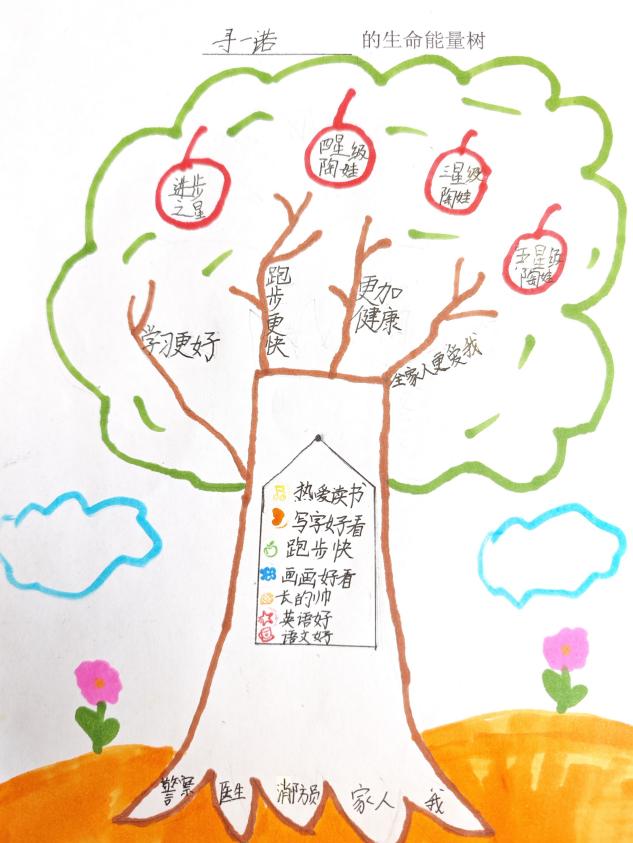 寻一诺 的生命能量树
四星级
陶娃
三星级
陶娃
进步
之星
五星级
陶娃
跑步更快
更加
健康
学习更好
全家人更爱我
热爱读书
写字好看
跑步快
画画好看
长的帅
英语好
语文好
警察 医生 消防员 家人 我